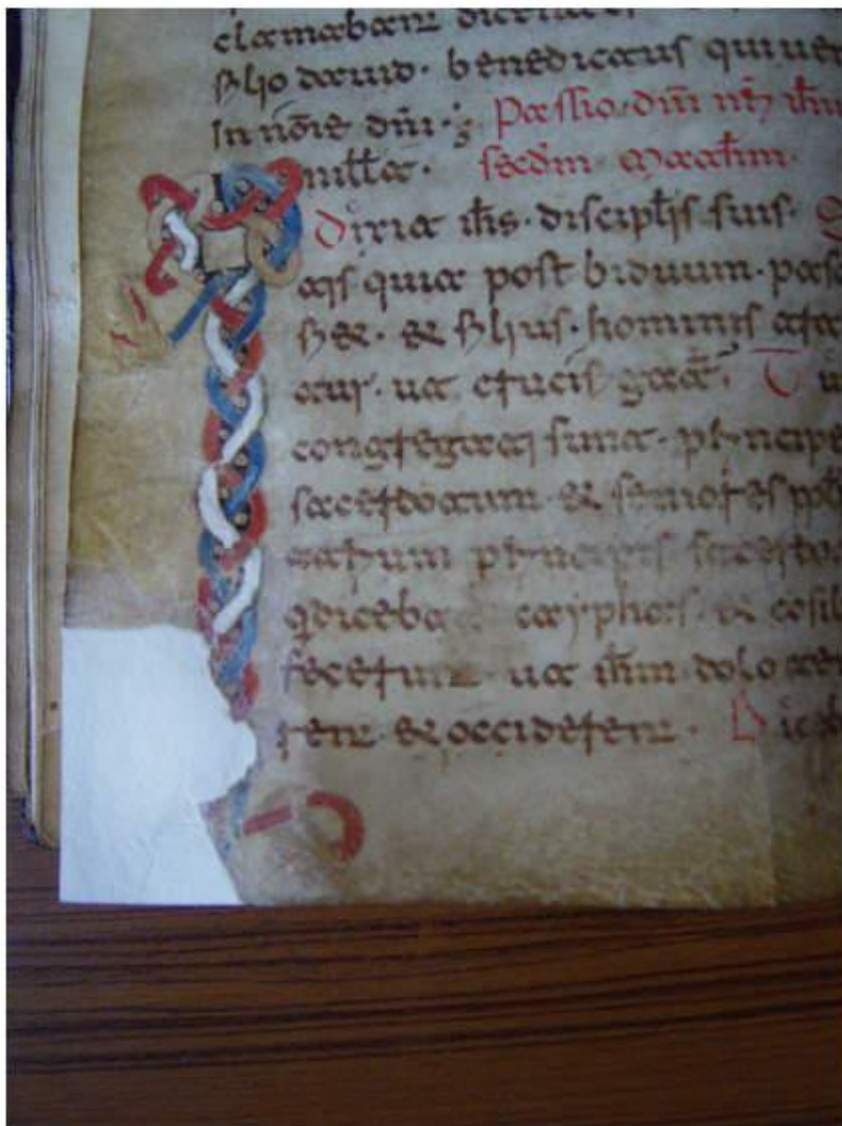 clamabant dicentes
filio dauid. benedictus qui uen
In nōīe dñi. Passio. dñi nrī ihū
In illt. secdm Mattħm.
Dixit ihs. discipl̄is suis. S
tis quia post biduum. pasc
fi&. & filius. hominis tra
tur. ut cruci gat̄. Tu
congregati sunt. principe
sacerdotum. & seniores ppl
atrium principis sacerdo
q̄ diceba cayphas. & cōsil
fecerunt. ut ihm dolo ten
rent. & occiderent. Dice